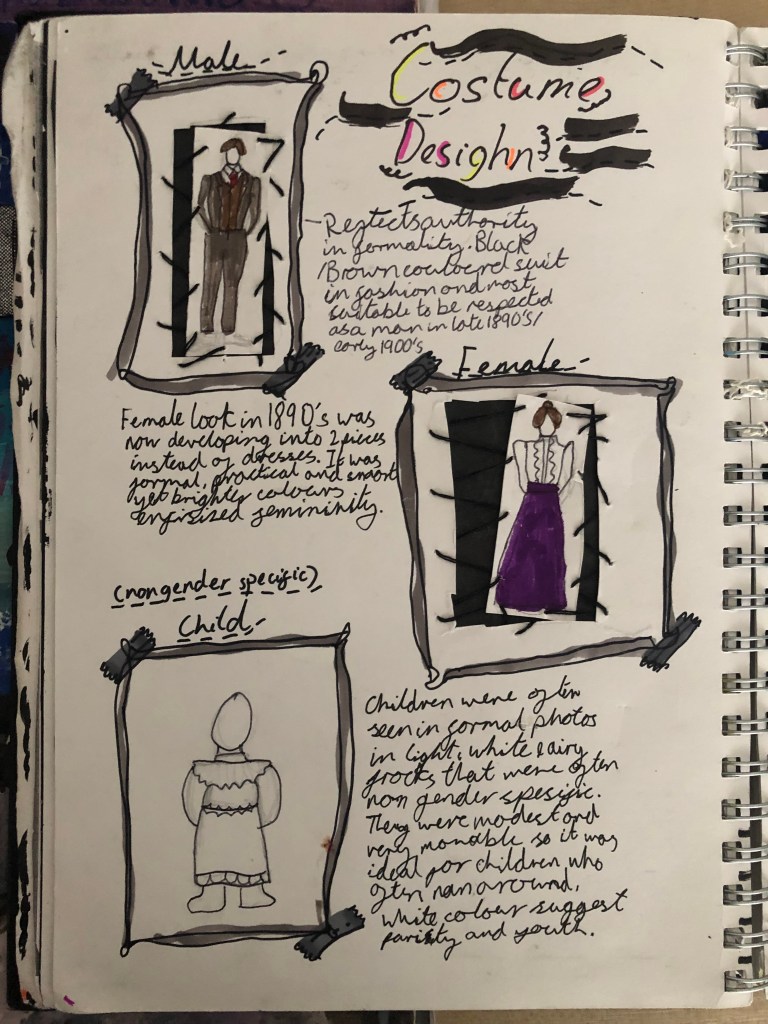 Male
Costume
Desighn
Reflects authority
in formality. Black
/Brown couloured suit
in fashion and most
suitable to be respected
as a man in late 1890's/
early 1900's
Female
Female look in 1890's was
now developing into 2 pieces
instead of dresses. It was
formal, practical and smart
yet brighter colours
femininity.
(non gender specific)
Child
Children were often
seen in formal photos
in light, white & airy
frocks that were often
non gender spesific.
They were modest and
very movable so it was
ideal for children who
often ran around,
white colour suggest
and youth.